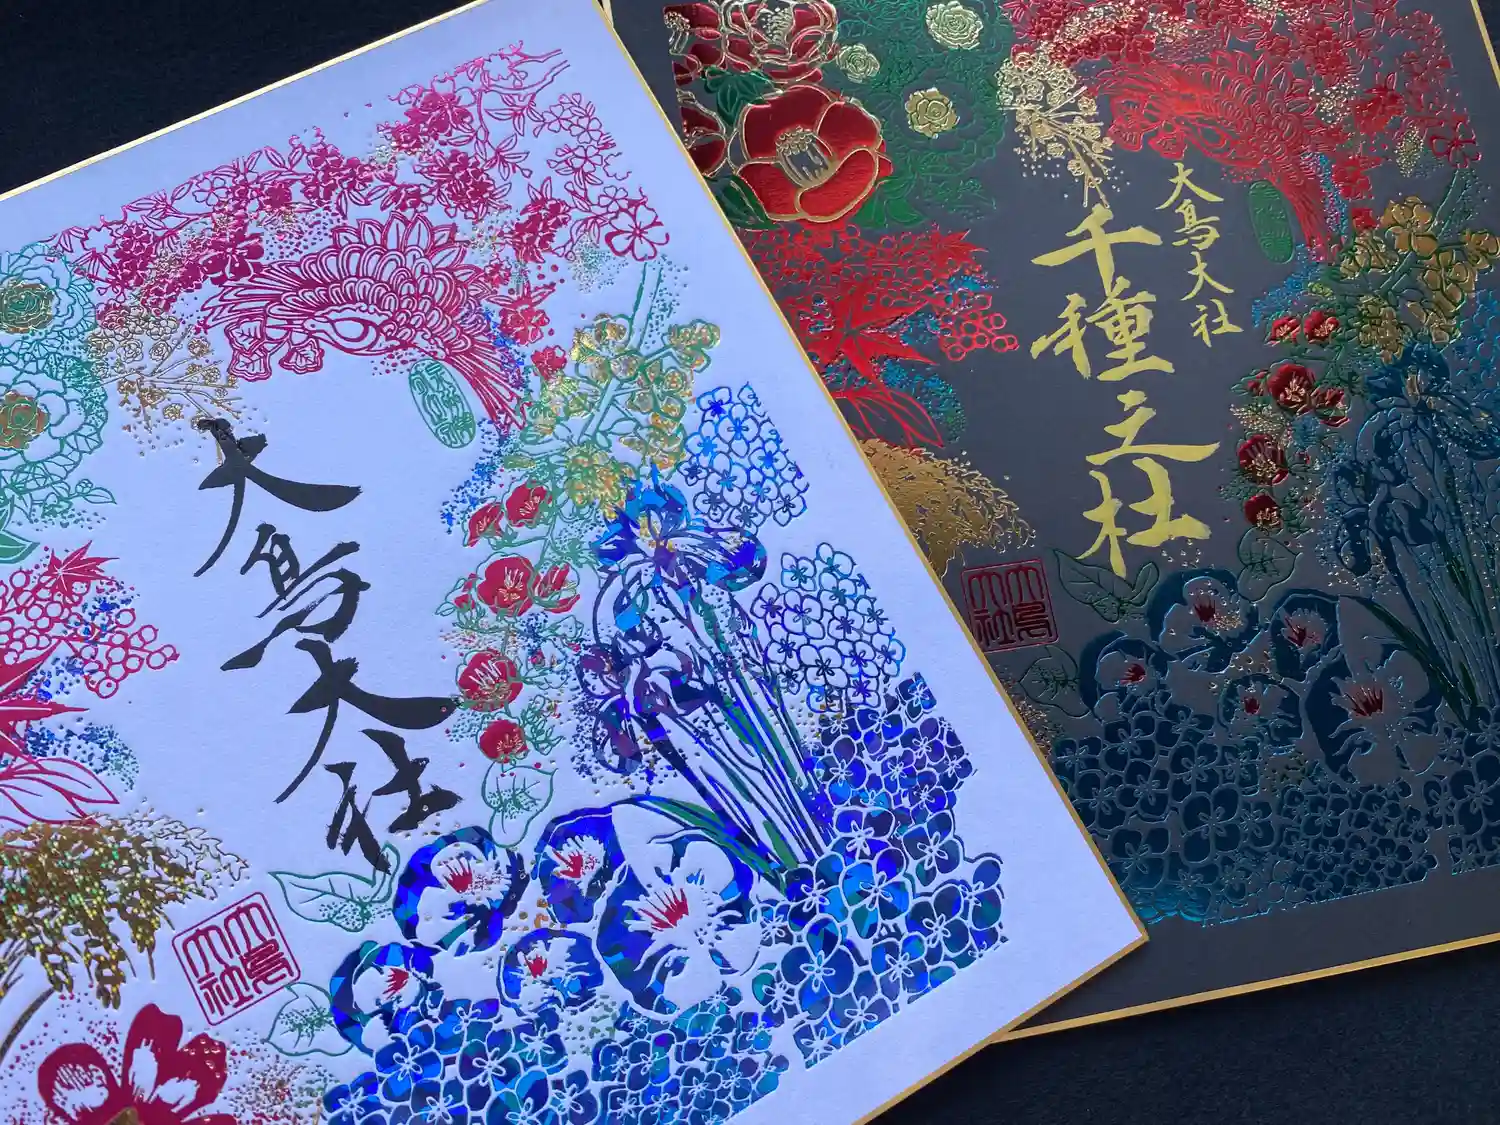 大鳥大社
大鳥
大社
大鳥大社
千種之杜
大鳥
大社